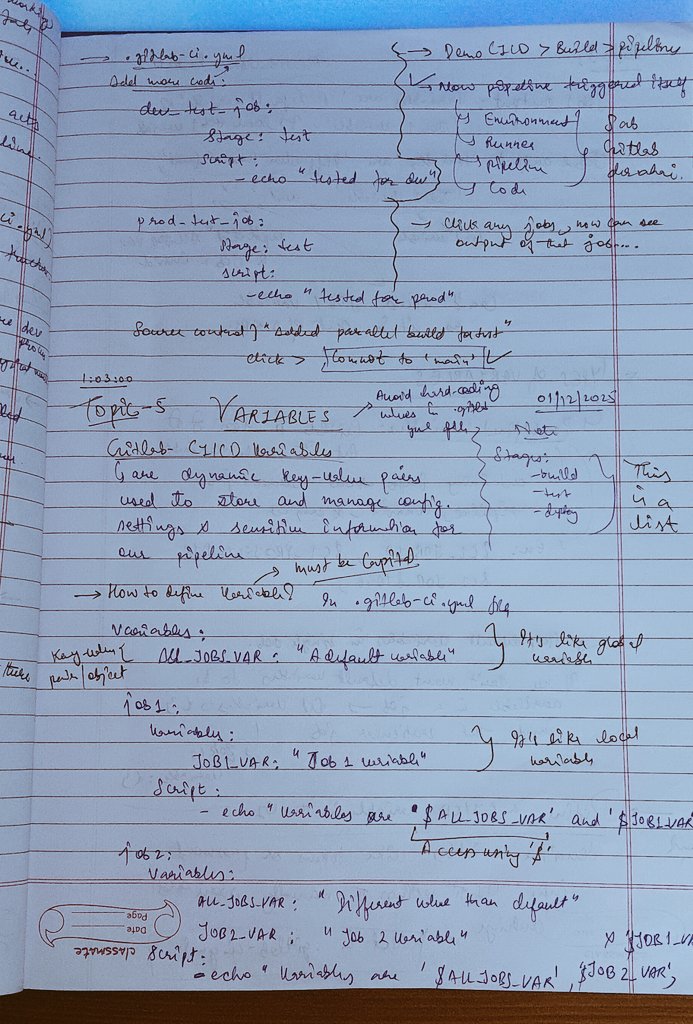 → .gitlab-ci.yml
Add more code:
dev_test_job:
Stage: test
Script:
- echo "tested for dev"
prod_test_job:
Stage: test
Script:
- echo "tested for prod"
→ Demo CICD > Build > pipelines
Now pipeline triggered itself
Environment
Runner
pipeline
Code
Sab
Gitlab
de raha hai.
→ Click any jobs, now can see
output of that job....
Source control } "Added parallel build for test"
click > Commot to 'main'
1:03:00
Topic-5 VARIABLES
→ Avoid hard-coding
values in .gitlab
yml file
01/12/2025
Note
Stages:
- build
- test
- deploy
This
is a
list
Gitlab-CI/CD Variables
are dynamic key-value pairs
used to store and manage config.
settings & sensitive information for
our pipeline
must be Capital
→ How to define Variable? In .gitlab-ci.yml file
Variables:
Key-value
pair/object
ALL_JOBS_VAR: "A default variable"
It's like global
variable
job1:
Variables:
JOB1_VAR: "Job 1 variable"
It's like local
variable
Script:
- echo "Variables are '$ALL_JOBS_VAR' and '$JOB1_VAR'
Access using '$'
job2:
Variables:
ALL_JOBS_VAR: "Different value than default"
JOB2_VAR: "Job 2 variable"
Script:
- echo "Variables are '$ALL_JOBS_VAR', '$JOB2_VAR',
& '$JOB1_VA
classmate
Date
Page